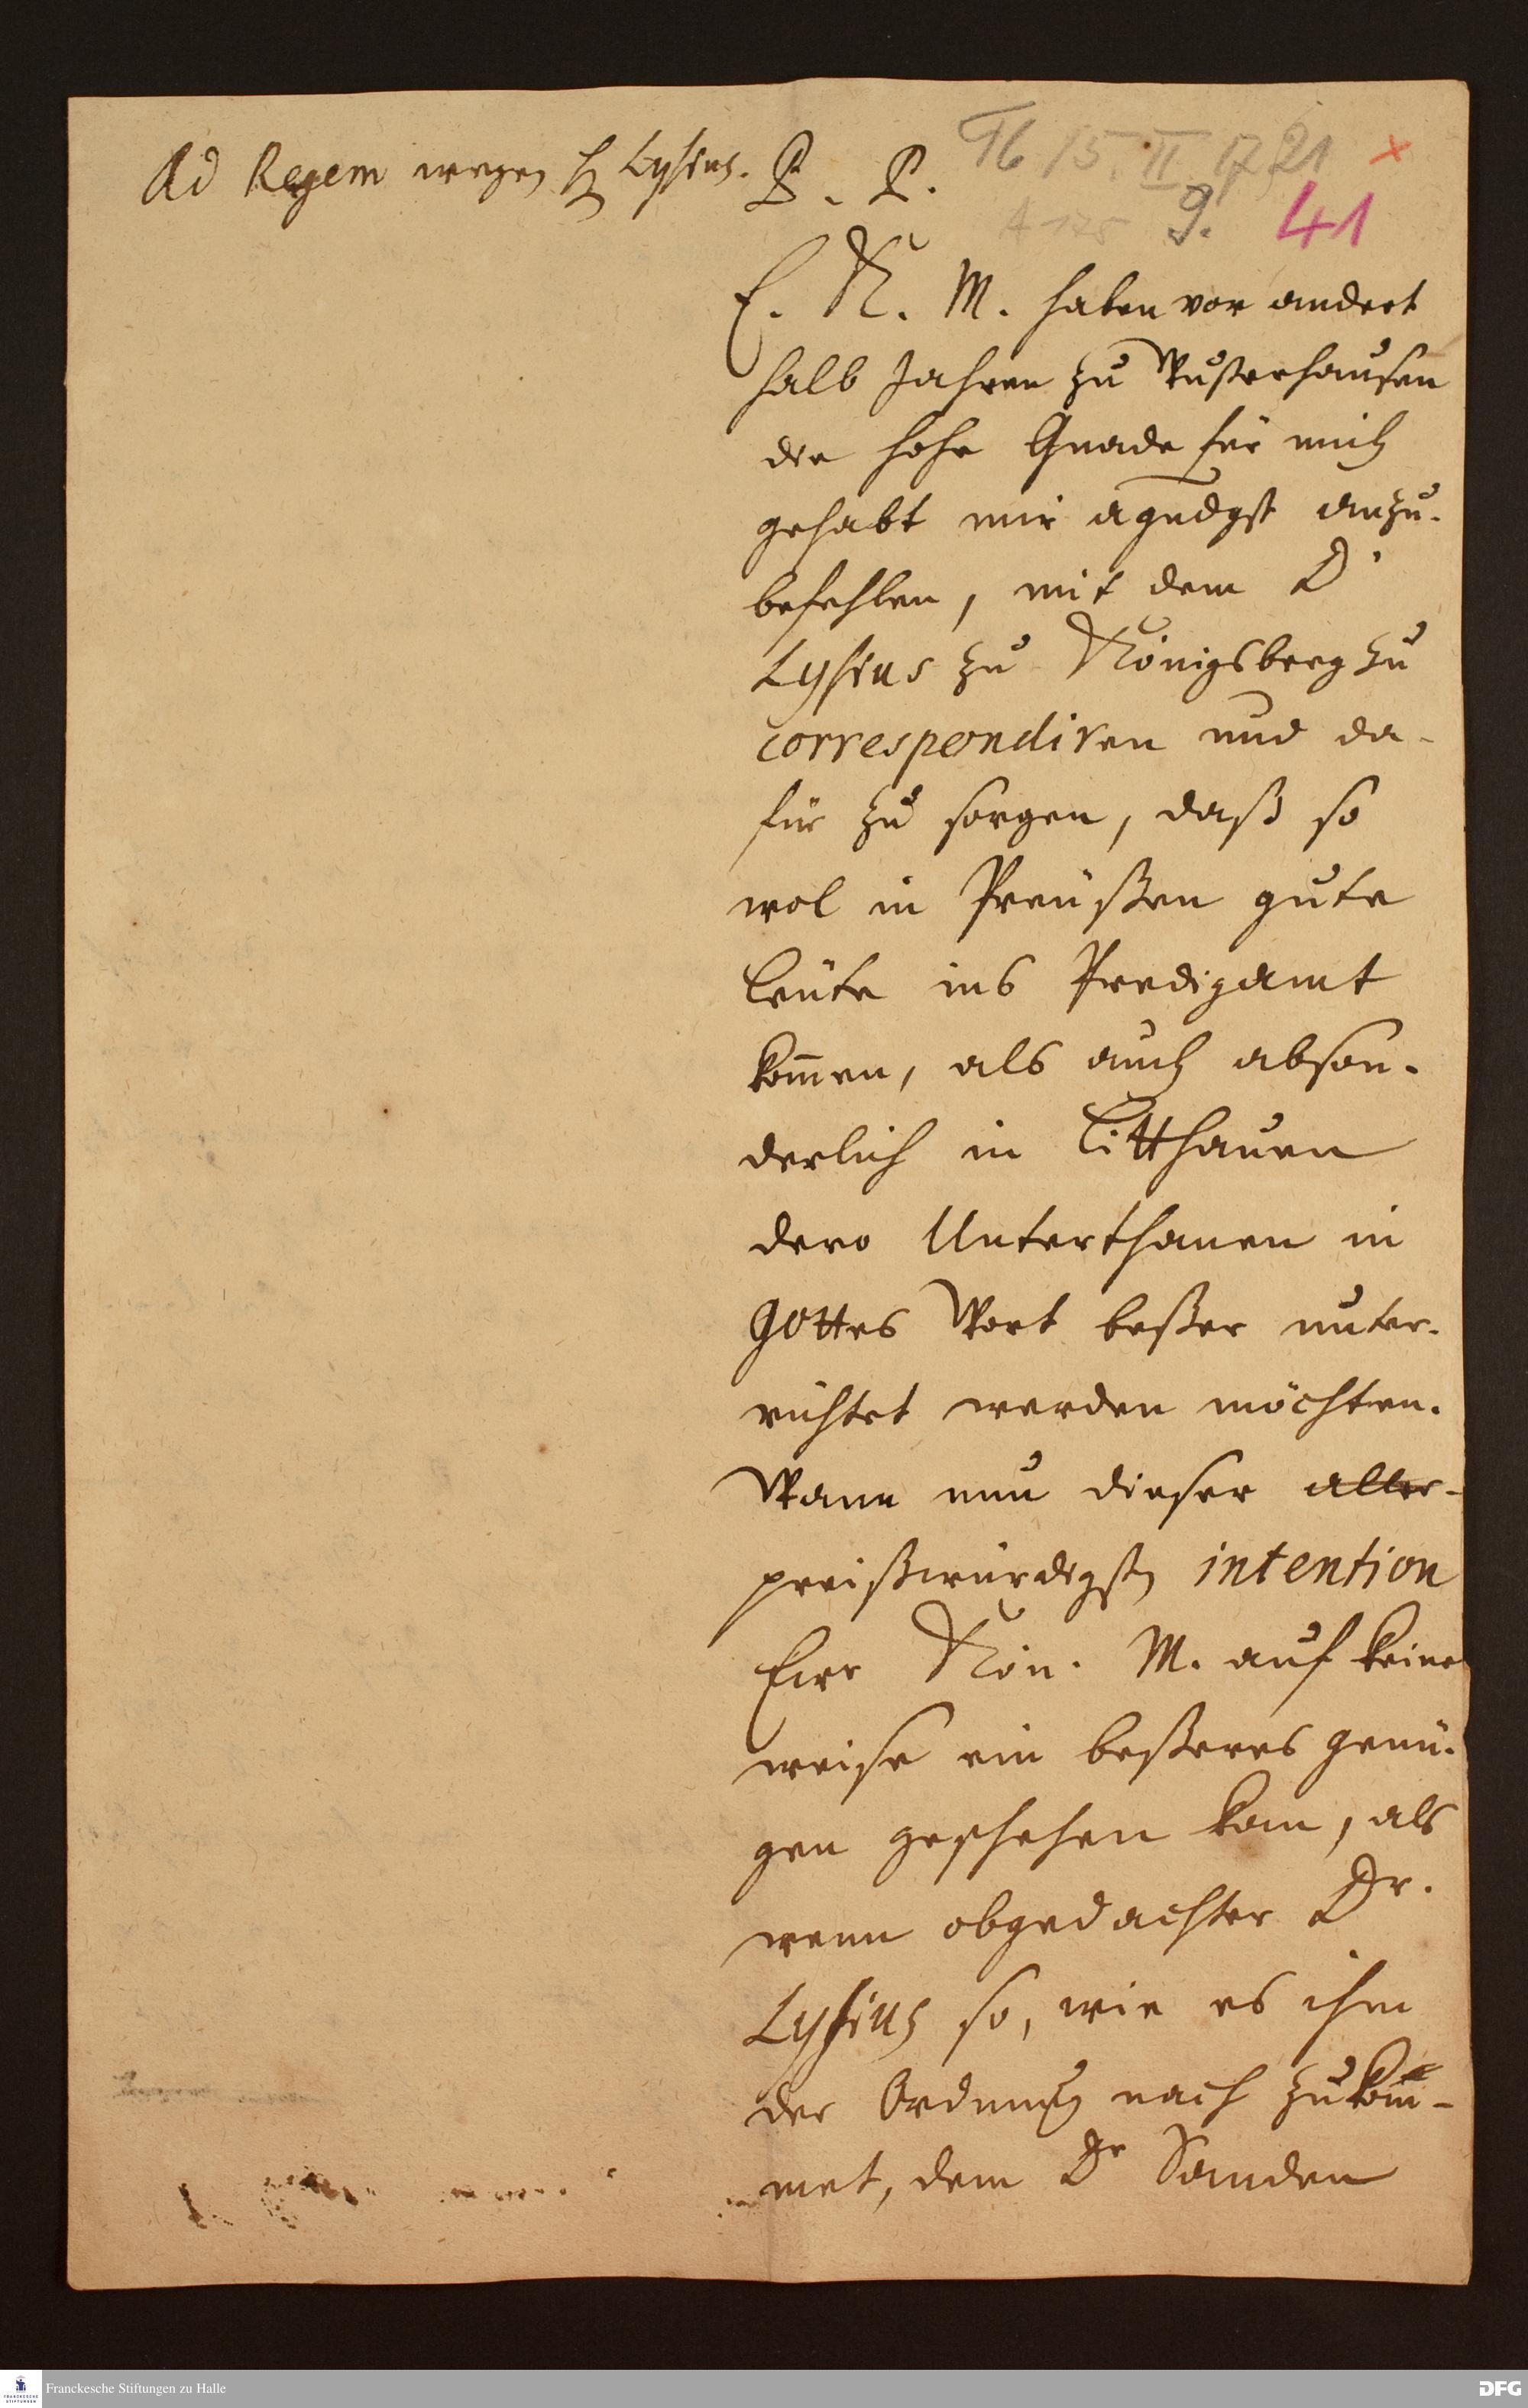 Ad Regem wegen H Lysius. P. P.
T6 15. II 1721 x
A 175 9. 41
E. K. M. haben vor andert
halb Jahren zu Wusterhausen
die hohe Gnade für mich
gehabt mir agndgst anzu-
befehlen, mit dem D
Lysius zu Königsberg zu
correspondiren und da-
für zu sorgen, daß so
wol in Preüßen gute
leüte ins Predigamt
kom̄en, als auch abson-
derlich in Litthauen
dero Unterthanen in
Gottes Wort beßer unter-
richtet werden möchten.
Wann nun dieser aller-
preißwürdigsten intention
Eure Kön. M. auf keine
weise ein beßeres genü-
gen geschehen kan, als
wenn obgedachter Dr.
Lysius so, wie es ihm
der Ordnung nach zukom̄-
met, dem Dr Sanden
Franckesche Stiftungen zu Halle
DFG